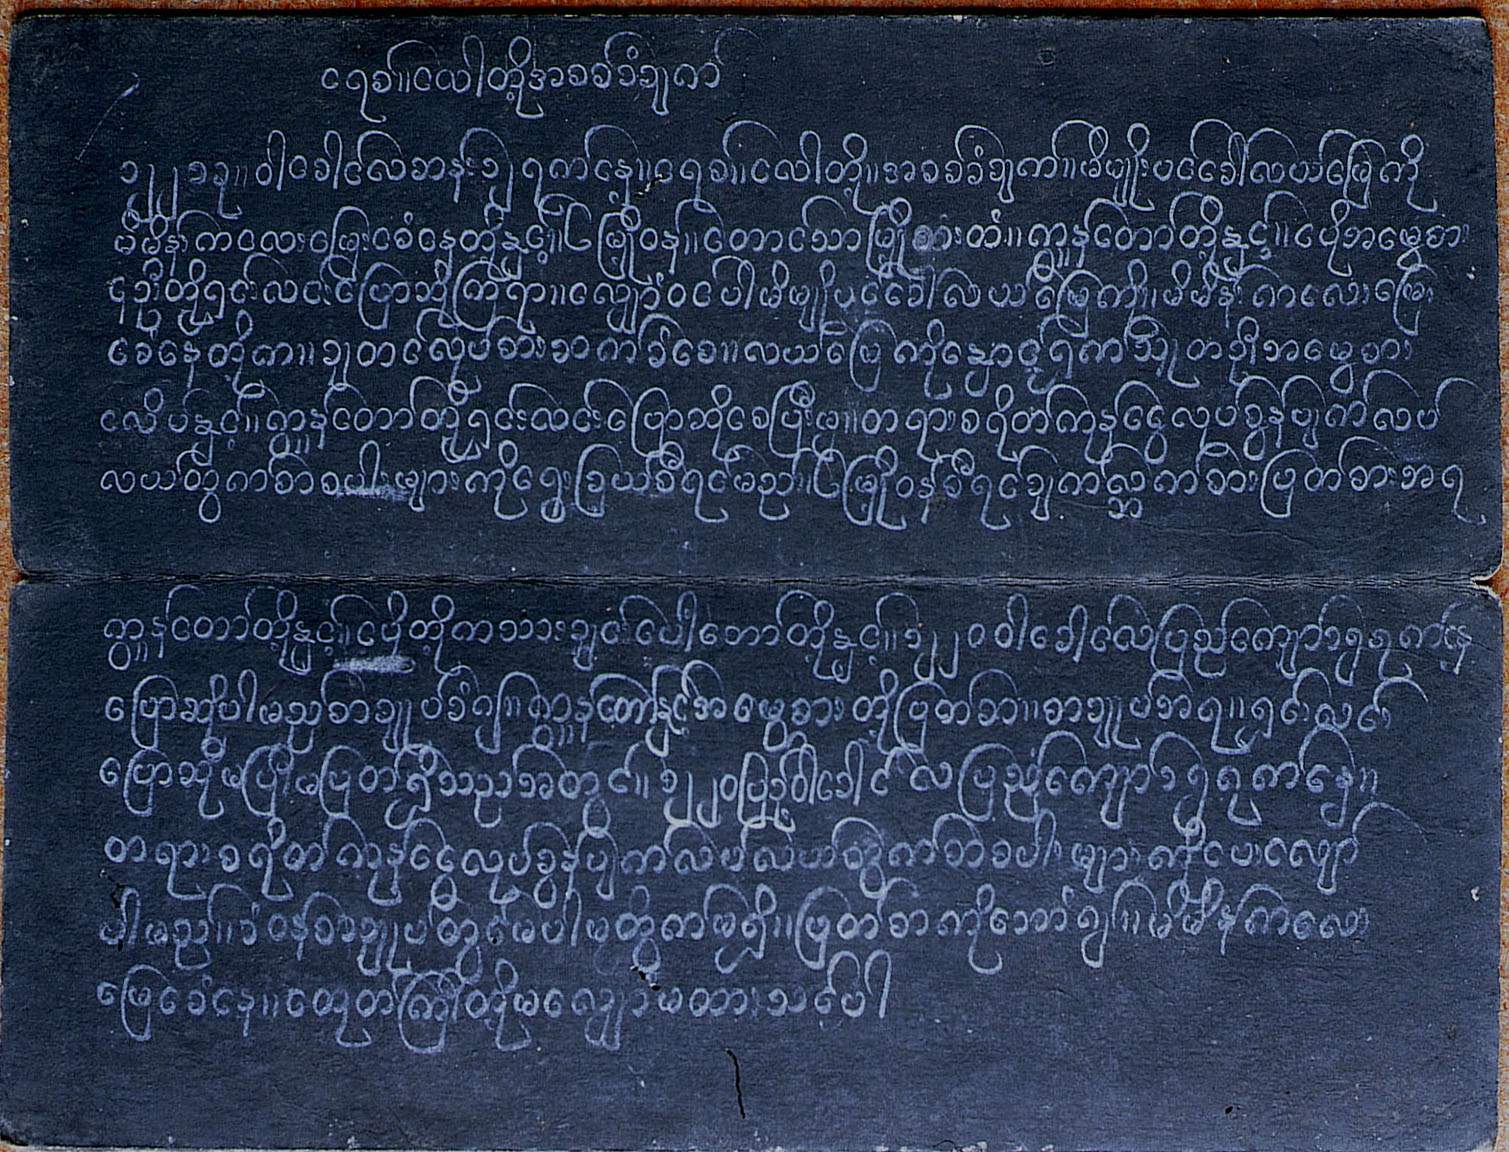 ငရစ်။ငယော်တို့အစစ်ခံချက်
၁၂၂၁ခု။ဝါခေါင်လဆန်း၅ရက်နေ့။ငရစ်။ငယော်တို့။အစစ်ခံချက်။မိမျိုးပင်ခေါ်လယ်မြေကို
မိမိန်းကလေးမြေးခံနေတို့နှင့်။၆မြို့ဝန်။တောင်သာမြို့စားထံ။ကျွန်တော်တို့နှင့်။ငပိုအမွေစား
၄ဦးတို့ရှင်းလင်းပြောဆိုကြရာ။လျှောက်ဝင်ပေါ်မိမျိုးပင်ခေါ်လယ်မြေကို။မိမိန်းကလေးမြေး
ခံနေတို့က။ချတင်လုပ်စားသောက်ခံစေ။လယ်မြေကိုနှောင့်ရှက်သူတဦးအမွေစား
ငလိပ်နှင့်။ကျွန်တော်တို့ရှင်းလင်းပြောဆိုစေပြီးမှ။တရားစရိတ်ကုန်ငွေလုပ်ခွန်ပျက်လပ်
လယ်တွက်စာစပါးများကိုရွေးခြယ်စီရင်မည်။၆မြို့ဝန်စီရင်ချက်လွှဲကစားဖြတ်စားအရ
ကျွန်တော်တို့နှင့်။ငပိုတို့ကသားချင်းပေါ်ဘော်တို့နှင့်။၁၂၂၀ဝါခေါင်လပြည့်ကျော်၁၅ရက်နေ့
ပြောဆိုပါမည်စာချုပ်ခံ၍။ကျွန်တော်နှင့်အမွေစားတို့ဖြတ်စာ။စာချုပ်အရ။ရှင်းလင်း
ပြောဆိုမပြီးမပြတ်ရှိသည်အတွင်း။၁၂၂၀ပြည့်ဝါခေါင်လပြည့်ကျော်၁၅ရက်နေ့။
တရားစရိတ်ကုန်ငွေလုပ်ခွန်ပျက်လပ်လယ်တွက်ဘာစပါးများကိုပေးလျော်
ပါမည်။ခံဝန်စာချုပ်တွင်မပါမတွက်မရှိ။ဖြတ်စာကိုထောက်၍။မိမိန်းကလေး
မြေးခံနေ။တေတကြီးတို့မလျှောမထားသင့်ပေါ်